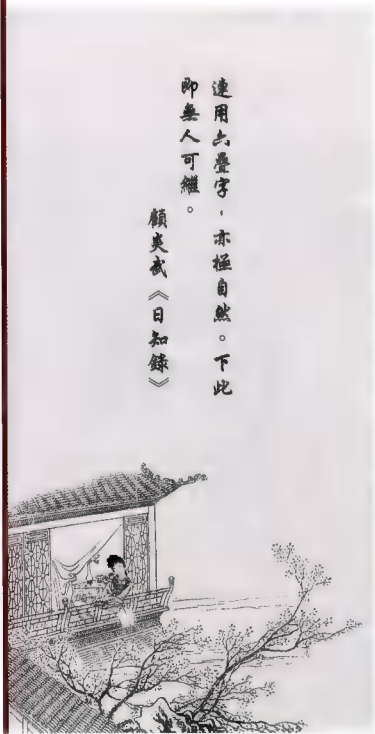 連用六疊字，亦極自然。下此
即無人可繼。
顧炎武《日知錄》